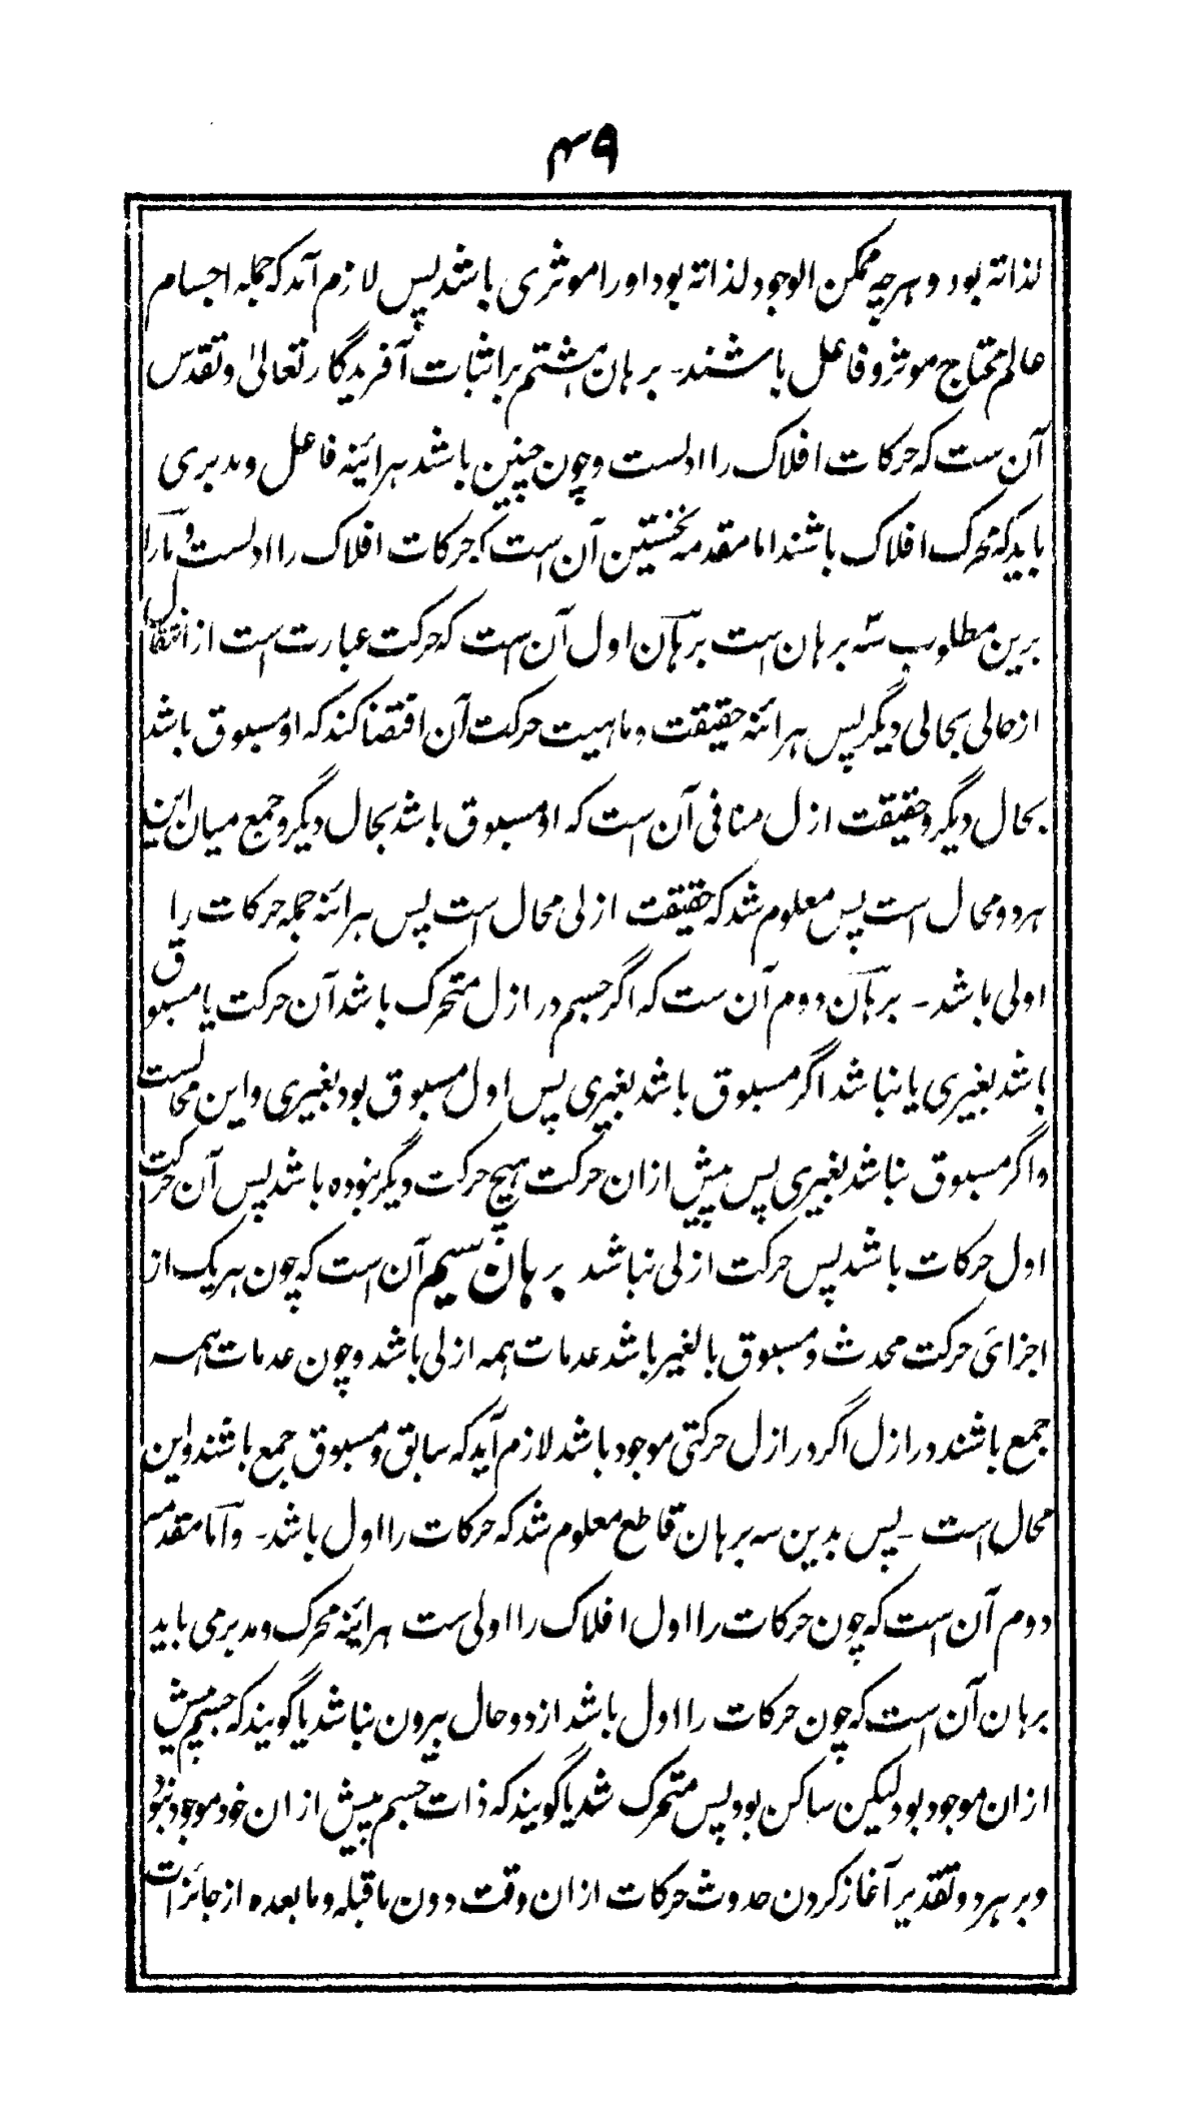 ۴۹
لذاته بود و هرچه ممکن الوجود لذاته بود اورا موثری باشد پس لازم آمد که جمله اجسام
عالم محتاج موثر و فاعل باشند۔ برهان هشتم بر اثبات آفریدگار تعالیٰ و تقدس
آن ست که حرکات افلاک را اولست و چون چنین باشد هرائینه فاعل و مدبری
باید که محرک افلاک باشند اما مقدمه نخستین آن است که حرکات افلاک را اولست و مارا
برین مطلوب سه برهان است برهان اول آن است که حرکت عبارت است از انتقال
از حالی بحالی دیگر پس هرائنه حقیقت و ماهیت حرکت آن اقتضا کند که او مسبوق باشد
بحال دیگر و حقیقت ازل منافی آن است که او مسبوق باشد بحال دیگر و جمع میان این
هر دو محال است پس معلوم شد که حقیقت ازلی محال است پس هرائنه جمله حرکات را
اولی باشد۔ برهان دوم آن ست که اگر جسم در ازل متحرک باشد آن حرکت یا مسبوق
باشد بغیری یا نباشد اگر مسبوق باشد بغیری پس اول مسبوق بود بغیری و این محالست
و اگر مسبوق نباشد بغیری پس پیش ازان حرکت هیچ حرکت دیگر نبوده باشد پس آن حرکت
اول حرکات باشد پس حرکت ازلی نباشد برهان سیم آن است که چون هر یک از
اجزائ حرکت محدث و مسبوق بالغیر باشد عدمات همه ازلی باشد و چون عدمات همه
جمع باشند در ازل اگر در ازل حرکتی موجود باشد لازم آید که سابق و مسبوق جمع باشند و این
محال است ۔ پس بدین سه برهان قاطع معلوم شد که حرکات را اول باشد۔ و اما مقدمه
دوم آن است که چون حرکات را اول افلاک را اولی ست هرائینه محرک و مدبرمی باید
برهان آن است که چون حرکات را اول باشد از دو حال بیرون نباشد یا گویند که جسم پیش
ازان موجود بود لیکن ساکن بود پس متحرک شد یا گویند که ذات جسم پیش ازان خود موجود نبود
و بر هر دو تقدیر آغاز کردن حدوث حرکات ازان وقت دون ماقبله و مابعده از جائزات